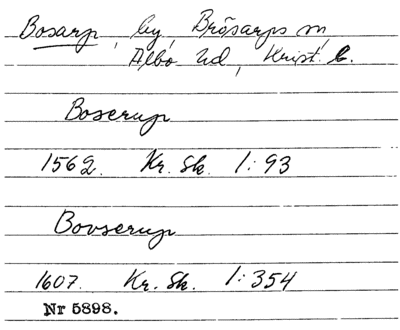 Bosarp, by, Brösarps sn,
Albo hd, Krist. l.
Boserup
1562. Kr. Sk. 1:93
Bovserup
1607. Kr. Sk. 1:354
Nr 5898.